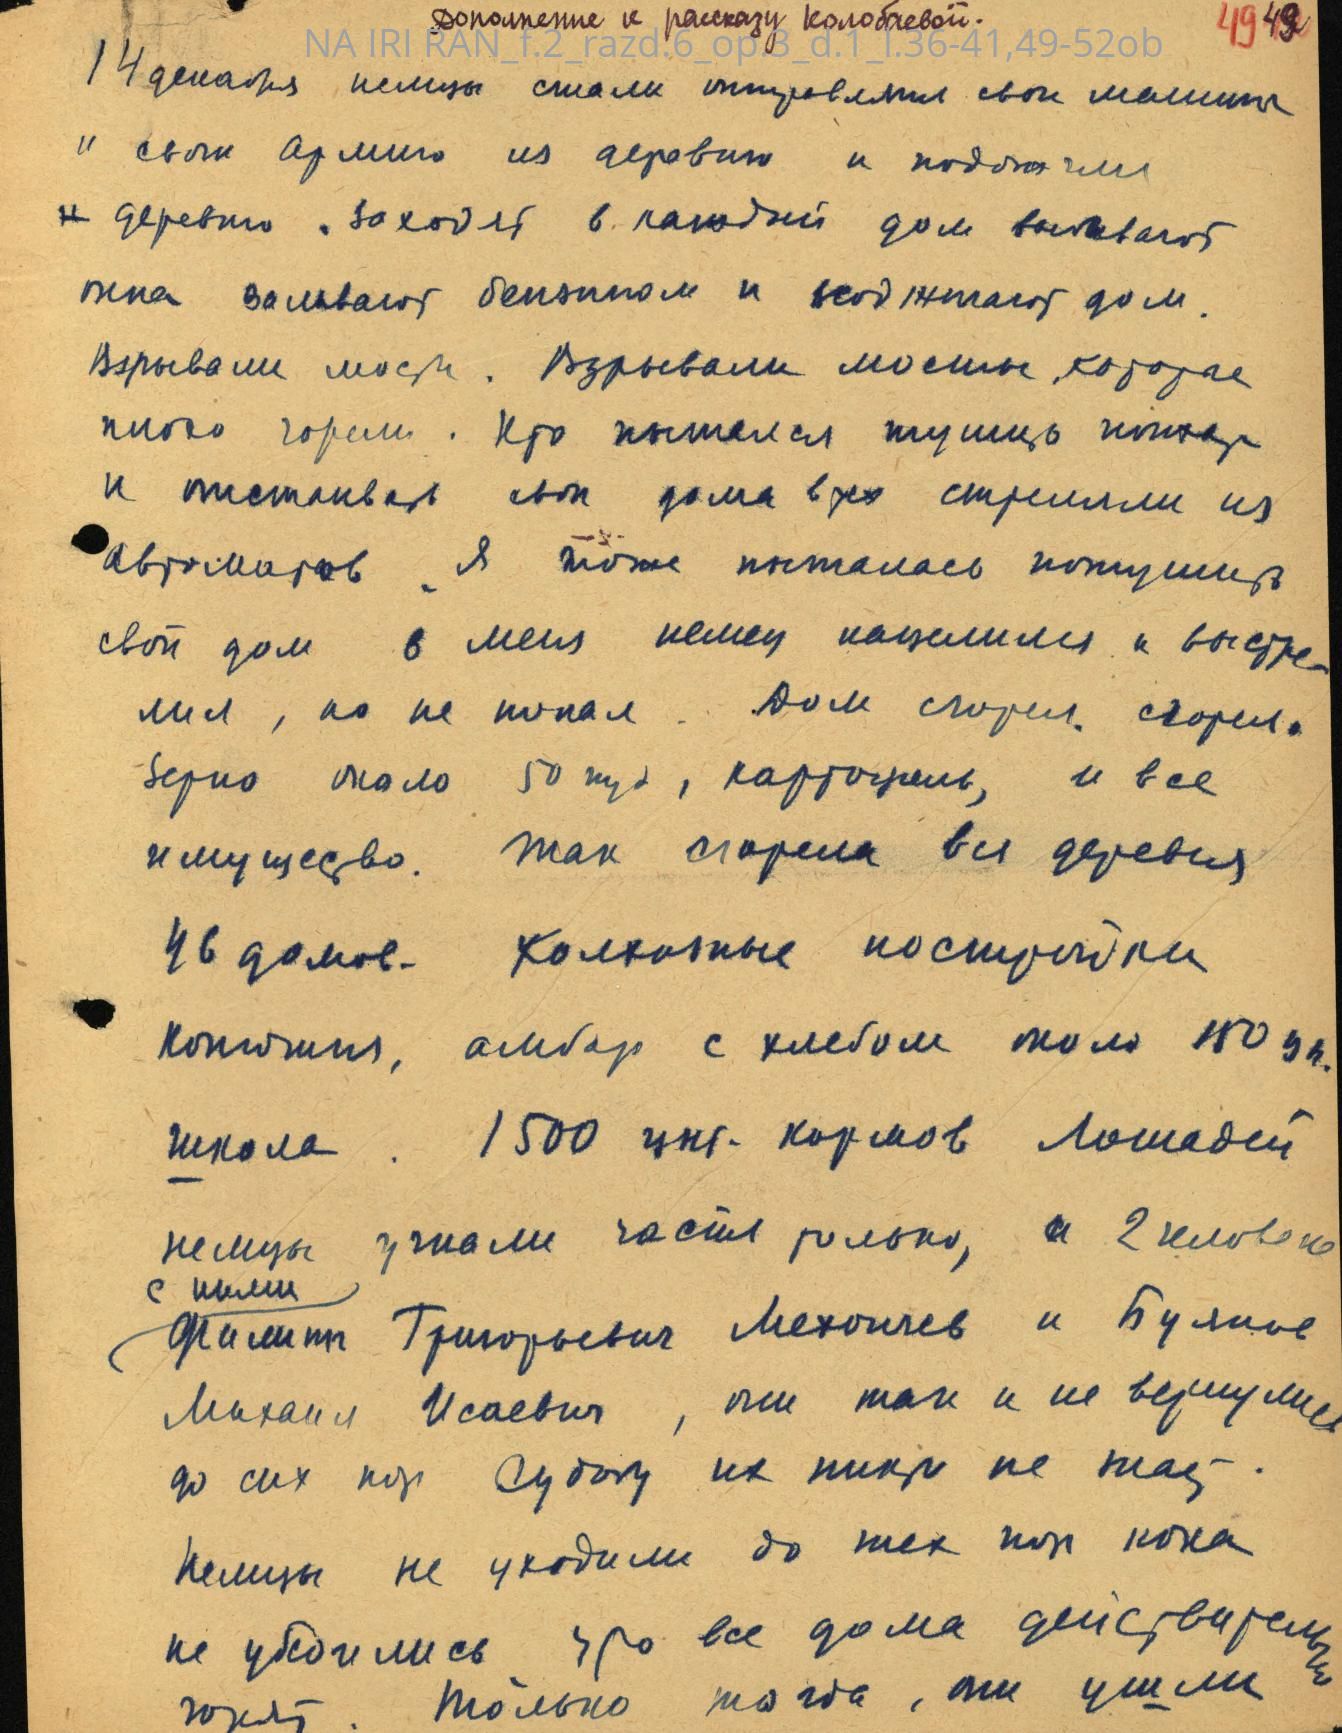 Дополнение к рассказу Колобаевой.
49 49
NA IRI RAN_f.2_razd.6_op.3_d.1_l.36-41,49-52ob
14 декабря немцы стали отправлять свои машины
и свою армию из деревни и подожгли
деревню. Заходят в каждый дом выбивают
окна заливают бензином и поджигают дом.
Взрывали мосты. Взрывали мосты, которые
плохо горели. Кто пытался тушить пожар
и отстаивать свои дома в них стреляли из
автоматов. Я тоже пыталась потушить
свой дом в меня немец нацелился и выстре-
лил, но не попал. Дом сгорел. сгорел.
Зерно около 50 пуд, картофель, и все
имущество. Так сгорела вся деревня
46 домов. Колхозные постройки
Конюшня, амбар с хлебом около
школа. 1500 цнт. кормов Лошадей
немцы угнали часть только, и 2 человека
с ними
Филипп Григорьевич и Буянов
Михаил Исаевич, они так и не вернулись
до сих пор Судьбу их никто не знает.
Немцы не уходили до тех пор пока
не убедились что все дома действительно
горят. Только тогда, они ушли